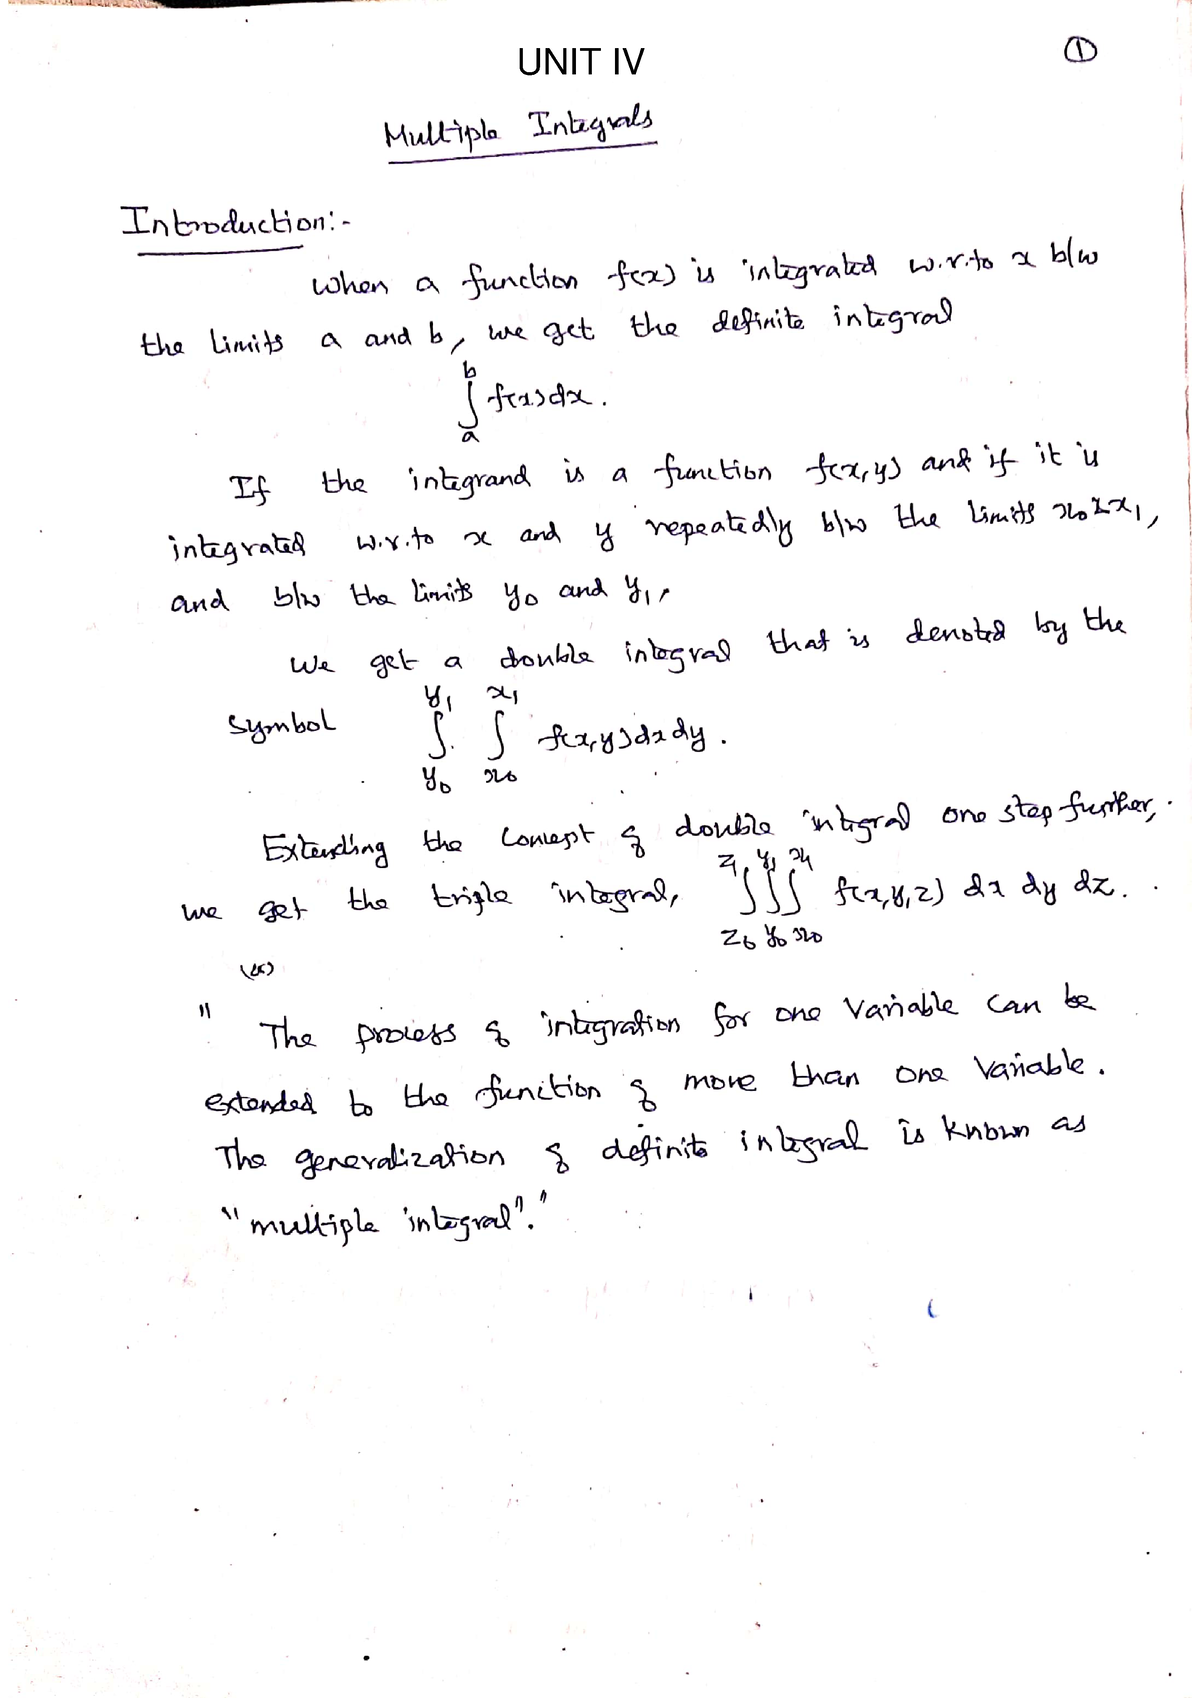 UNIT IV
①
Multiple Integrals
Introduction:-
When a function f(x) is integrated w.r.to x b/w
the limits a and b, we get the definite integral
∫_a^b f(x)dx.
If the integrand is a function f(x,y) and if it is
integrated w.r.to x and y repeatedly b/w the limits x₀ & x₁,
and b/w the limits y₀ and y₁,
We get a double integral that is denoted by the
symbol ∫_{y₀}^{y₁} ∫_{x₀}^{x₁} f(x,y)dx dy.
Extending the concept of double integral one step further,
we get the triple integral, ∫_{z₀}^{z₁} ∫_{y₀}^{y₁} ∫_{x₀}^{x₁} f(x,y,z) dx dy dz.
(or)
" The process of integration for one variable can be
extended to the function of more than one variable.
The generalization of definite integral is known as
"multiple integral"."